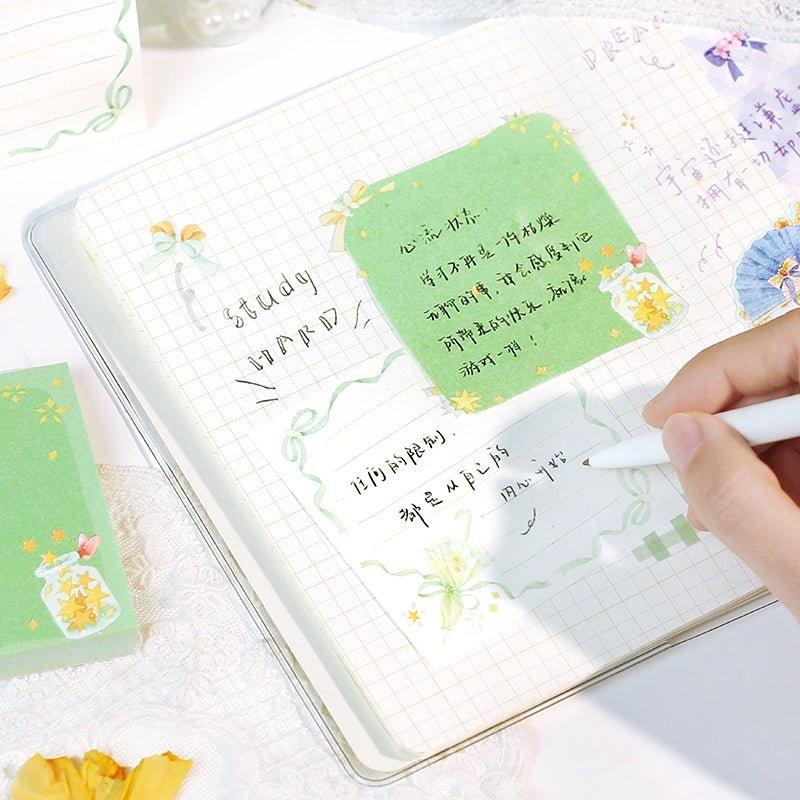 study
HARD
心流状态:
学习不再是一件枯燥
无聊的事,我会感受到它
所带来的快乐,就像
游戏一样!
任何的限制,
都是从自己的
内心开始
DREA
宇宙还挺谦虚
拥有一切却